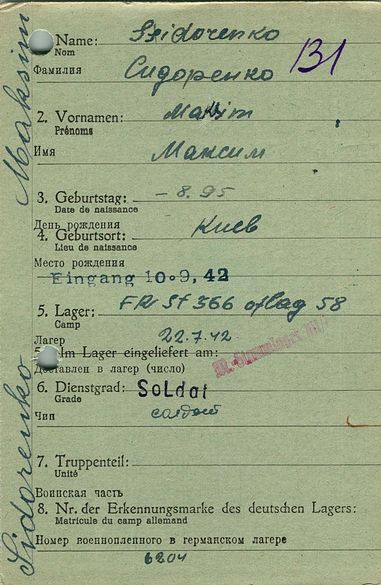 Maksim
Sidorenko
Name: Ssidorenko
Nom
131
Фамилия Сидоренко
2. Vornamen: Maksim
Prénoms
Имя Максим
3. Geburtstag: – 8. 95
Date de naissance
День рождения
4. Geburtsort: Киев
Lieu de naissance
Место рождения
Eingang 10.9, 42
5. Lager: FR St 366 oflag 58
Camp
Лагер 22.7.42
5 Im Lager eingeliefert am:
Доставлен в лагер (число)
6. Dienstgrad: SoLdat
Grade
Чин солдат
7. Truppenteil:
Unité
Воинская часть
8. Nr. der Erkennungsmarke des deutschen Lagers:
Matricule du camp allemand
Номер военнопленного в германском лагере
6204